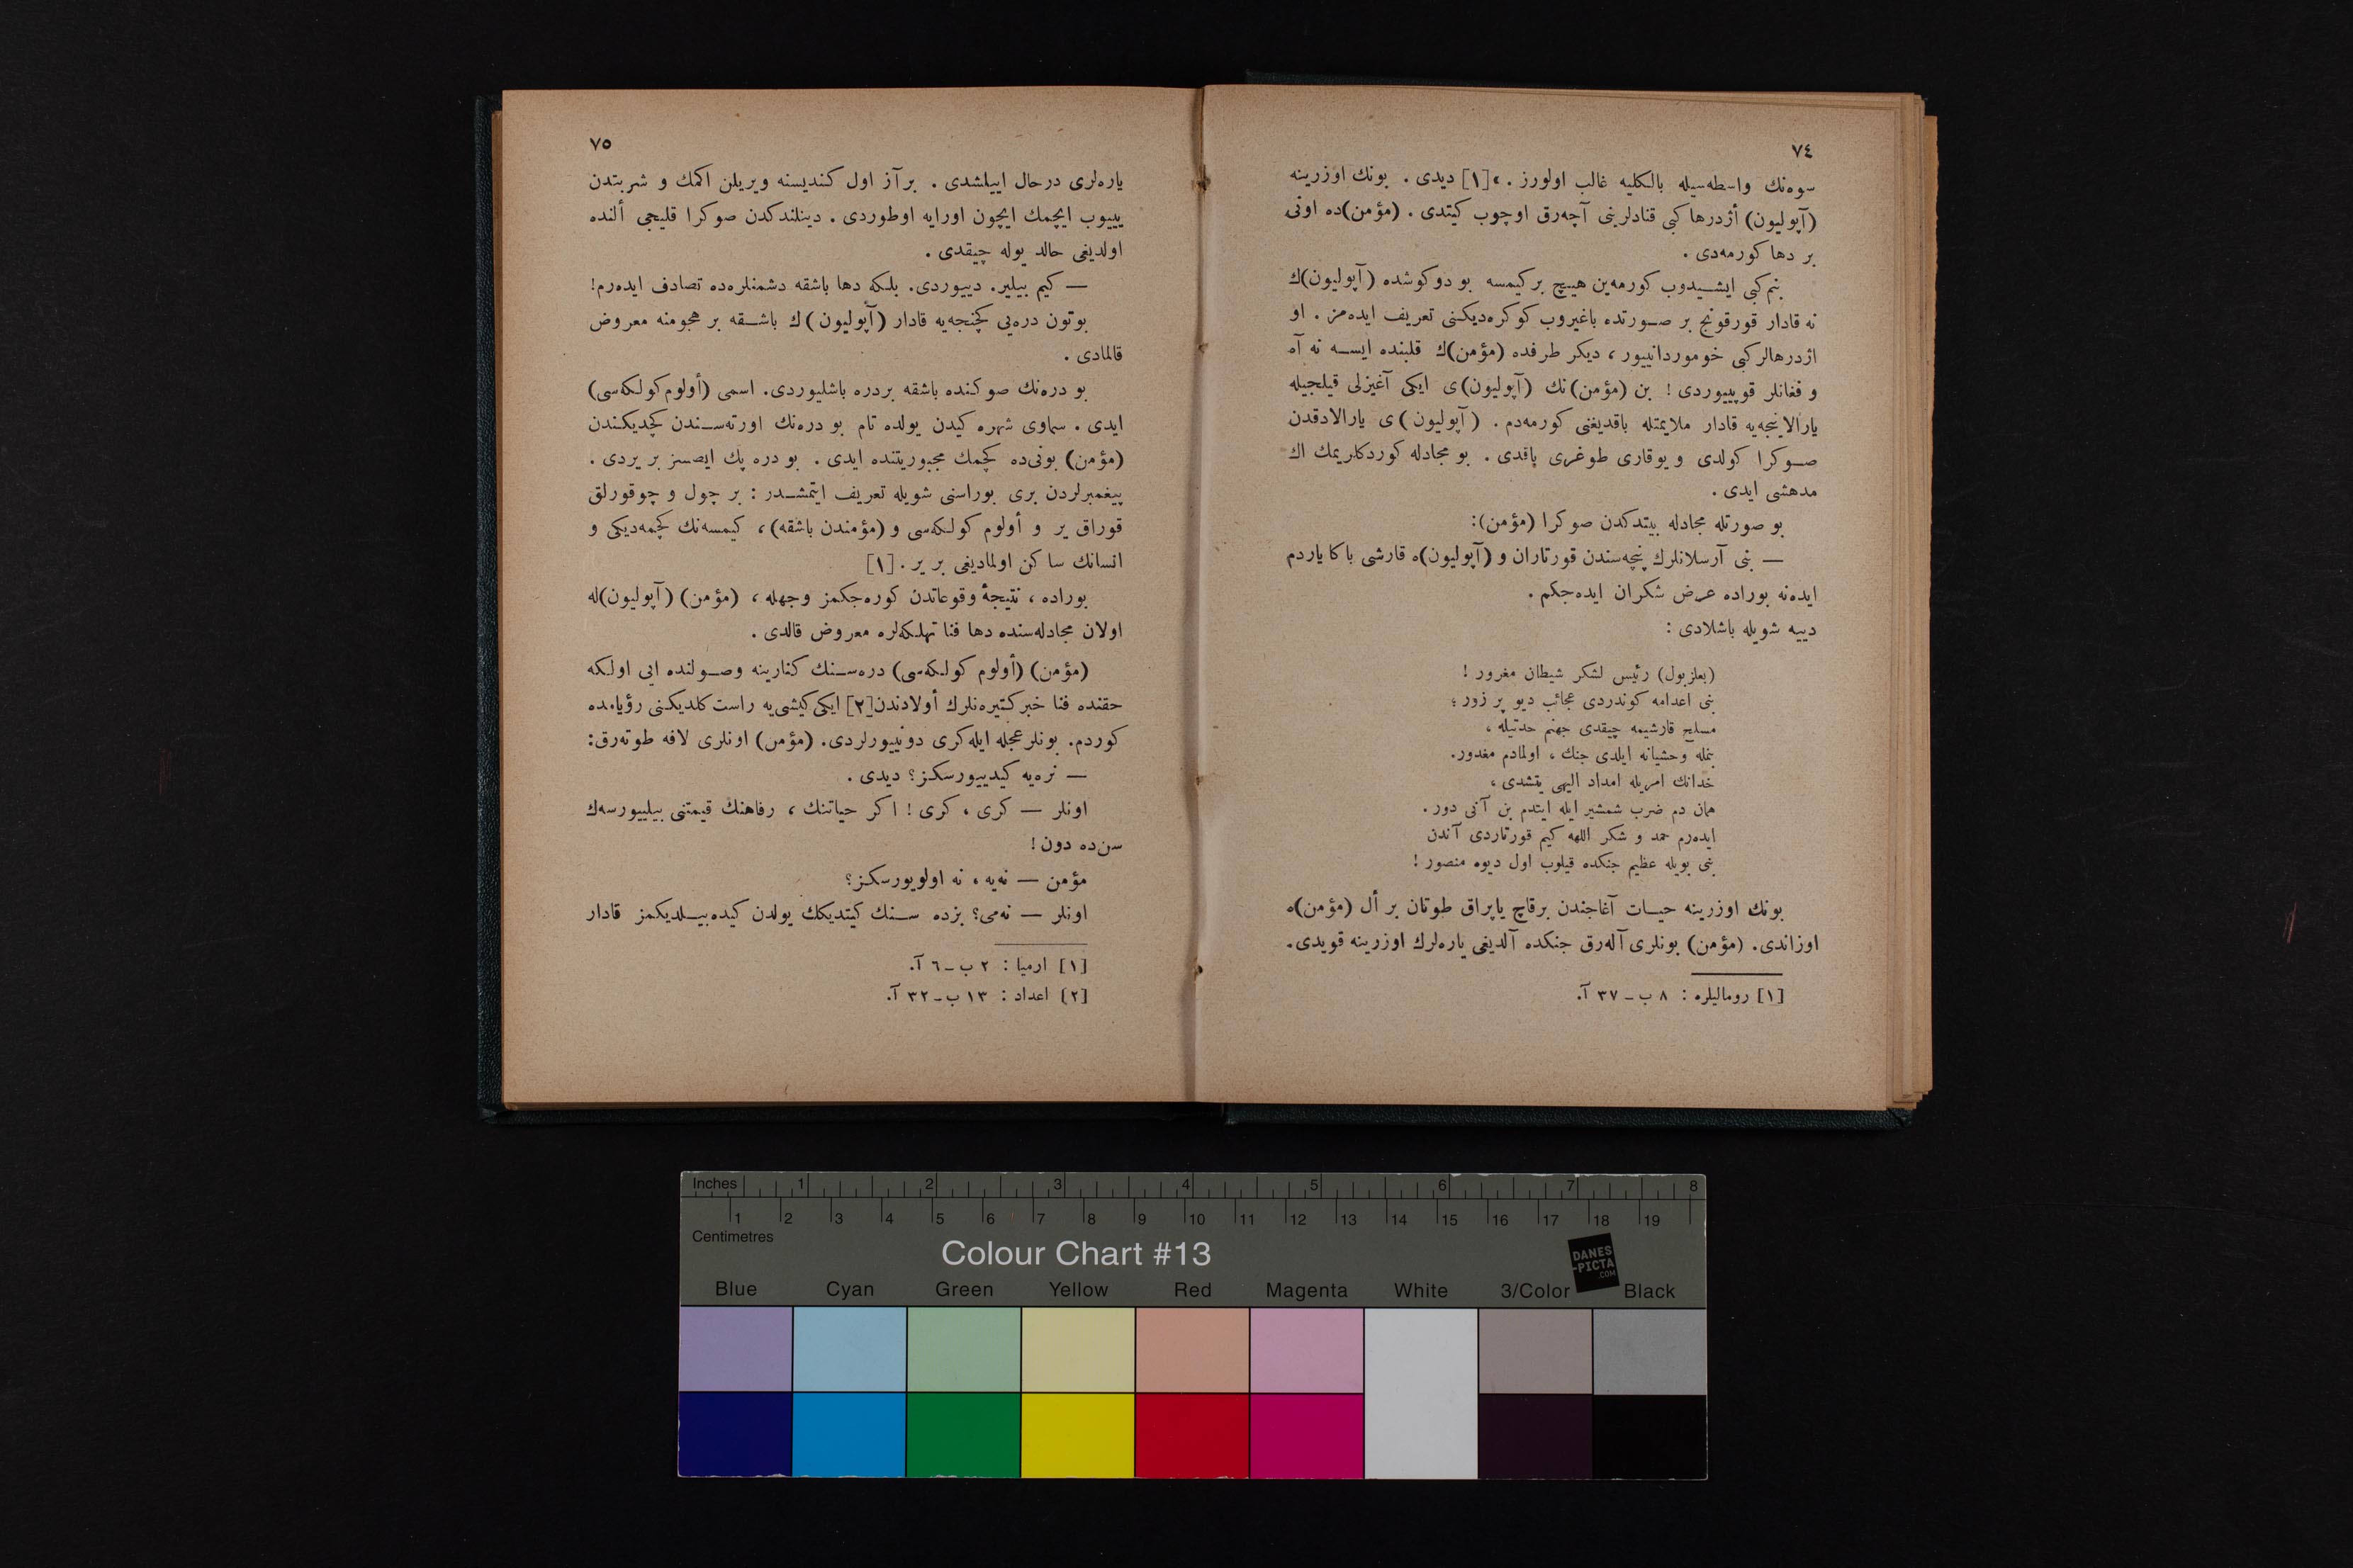 ٧٤
سوه‌نك واسطه‌سيله بالكليه غالب اولورز . »[١] ديدى . بونك اوزرينه
(آپوليون) أژدرها كبى قنادلرينى آچه‌رق اوچوب كيتدى . (مؤمن)ده اونى
بر دها كورمه‌دى .
بنم كبى ايشـيدوب كورمه‌ين هيـچ بر كيمسه بو دوكوشده (آپوليون)ك
نه قادار قورقونج بر صـورتده باغيروب كوكره‌ديكنى تعريف ايده‌مز . او
اژدرهالر كبى خوموردانييور ، ديكر طرفده (مؤمن)ك قلبنده ايسـه نه آه
و فغانلر قوپييوردى ! بن (مؤمن)نك (آپوليون)ى ايكى آغيزلى قيلجيله
يارالاينجه‌يه قادار ملايمتله باقديغنى كورمه‌دم . (آپوليون)ى يارالادقدن
صـوكرا كولدى و يوقارى طوغرى باقدى . بو مجادله كوردكلريمك اك
مدهشى ايدى .
بو صورتله مجادله بيتدكدن صوكرا (مؤمن):
— بنى آرسلانلرك پنچه‌سندن قورتاران و (آپوليون)ه قارشى باكا ياردم
ايده‌نه بوراده عرض شكران ايده‌جكم .
دييه شويله باشلادى :
(بعلزبول) رئيس لشكر شيطان مغرور !
بنى اعدامه كوندردى عجائب ديو پر زور ؛
مسلح قارشيمه چيقدى جهنم حدتيله ،
بنمله وحشيانه ايلدى جنك ، اولمادم مغدور.
خدانك امريله امداد الهى يتشدى ،
همان دم ضرب شمشير ايله ايتدم بن آنى دور .
ايده‌رم حمد و شكر اللهه كيم قورتاردى آندن
بنى بويله عظيم جنكده قيلوب اول ديوه منصور !
بونك اوزرينه حيـات آغاجندن برقاچ ياپراق طوتان بر أل (مؤمن)ه
اوزاندى. (مؤمن) بونلرى آله‌رق جنكده آلديغى ياره‌لرك اوزرينه قويدى.
[١] روماليلره : ٨ ب ـ ٣٧ آ.
٧٥
ياره‌لرى درحال اييلشدى . بر آز اول كنديسنه ويريلن اكمك و شربتدن
ييیوب ايچمك ايچون اورايه اوطوردى . دينلندكدن صوكرا قليجى ألنده
اولديغى حالد يوله چيقدى .
— كيم بيلير. دييوردى. بلكه دها باشقه دشمنلره‌ده تصادف ايده‌رم!
بوتون دره‌يى كچنجه‌يه قادار (آپوليون)ك باشـقه بر هجومنه معروض
قالمادى .
بو دره‌نك صوكنده باشقه بردره باشليوردى. اسمى (أولوم كولكه‌سى)
ايدى . سماوى شهره كيدن يولده تام بو دره‌نك اورته‌سـندن كچديكندن
(مؤمن) بونى‌ده كچمك مجبوريتنده ايدى . بو دره پك ايصسز بر يردى .
پيغمبرلردن برى بوراسنى شويله تعريف ايتمشـدر : بر چول و چوقورلق
قوراق ير و أولوم كولكه‌سى و (مؤمندن باشقه) ، كيمسه‌نك كچمه‌ديكى و
انسانك ساكن اولماديغى بر ير . [١]
بوراده ، نتيجۀ وقوعاتدن كوره‌جكمز وجهله ، (مؤمن) (آپوليون)له
اولان مجادله‌سنده دها فنا تهلكه‌لره معروض قالدى .
(مؤمن) (أولوم كولكه‌سى) دره‌سـنك كنارينه وصـولنده ايى اولكه
حقنده فنا خبر كتيره‌نلرك أولادندن[٢] ايكى كيشى‌يه راست كلديكنى رؤيامده
كوردم. بونلر عجله ايله كرى دونييورلردى. (مؤمن) اونلرى لافه طوته‌رق:
— نره‌يه كيدييورسكز؟ ديدى .
اونلر — كرى ، كرى ! اكر حياتنك ، رفاهنك قيمتنى بيلييورسه‌ك
سن‌ده دون !
مؤمن — نه‌يه ، نه اولويورسكز؟
اونلر — نه‌مى؟ بزده سـنك كيتديكك يولدن كيده‌بيـلديكمز قادار
[١] ارميا : ٢ ب ـ ٦ آ.
[٢] اعداد : ١٣ ب ـ ٣٢ آ.
Inches 1 2 3 4 5 6 7 8
1 2 3 4 5 6 7 8 9 10 11 12 13 14 15 16 17 18 19
Centimetres
Colour Chart #13
DANES
-PICTA
.COM
Blue Cyan Green Yellow Red Magenta White 3/Color Black